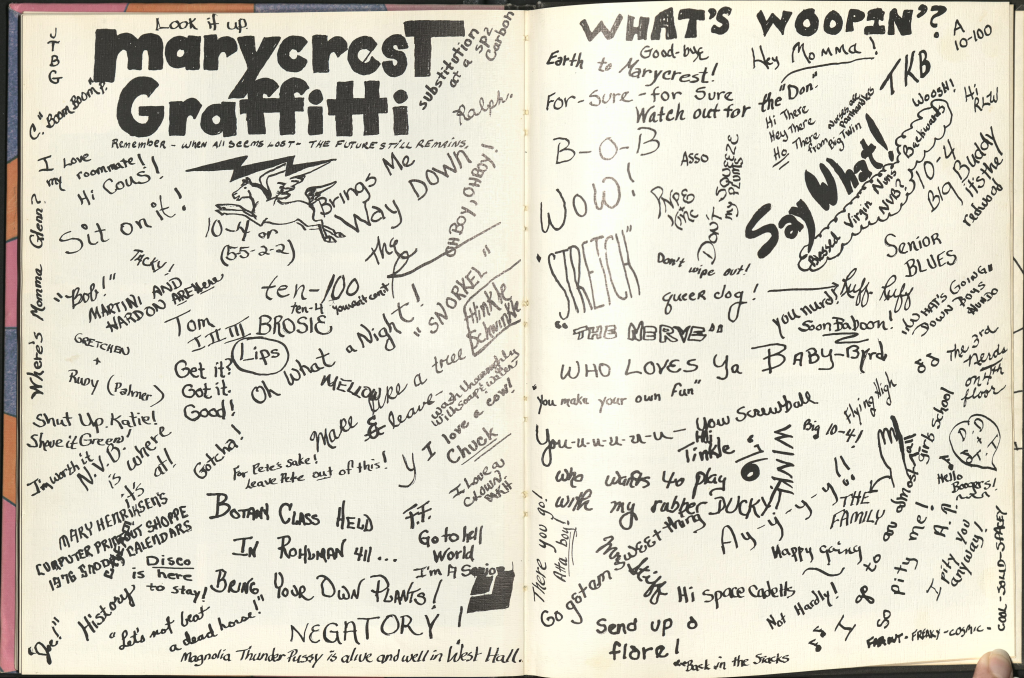 Look it up.
marycrest
Graffitti
Remember - when all seems lost - the future still remains.
JTBG
C. "Boom Boom" P.
substitution
at a sp2
carbon
Ralph.
I Love
my roommate!
Hi Cous!
Sit on it!
Brings Me
Way DOWN
OH BOY, OH BOY!
10-4 or
(5-5-2-2)
Where's Momma Glenn?
TACKY!
"Bob!"
MARTINI AND
HARD ON ARE Here
the
ten-100
ten-4
you ain't can't
"SNORKEL"
Hinkle
Schwinkle
Tom
I II III BROSIE
GRETCHEN
+
Rudy (Palmer)
Lips
Get it?
Got it.
Good!
Oh What a Night!
MELLOW
Make like a tree
& leave.
wash thoroughly
with soap & water
I love a cow!
y
Chuck
Shut Up, Katie!
Shove it Green!
I'm worth it
N.V.B.
is where
it's at!
Gotcha!
For Pete's Sake!
leave Pete out of this!
I Love a
CLOWN
MARY HENRIKSEN'S
COMPUTER PRINTOUT SHOPPE
1976 SNOOPY CALENDARS
BOTAN CLASS HELD
IN ROHLMAN 411...
BRING YOUR OWN PLANTS!
F.F.
Go to hell
World
I'm A Senior
Disco
is here
to stay!
History
"Let's not beat
a dead horse!"
"Joe!"
NEGATORY!
Magnolia Thunder Pussy is alive and well in West Hall.
WHAT'S WOOPIN'?
A
10-100
Earth to
Good-bye
Marycrest!
Hey Momma!
TKB
For-Sure-for Sure
Watch out for the "Don"
Hi There
Hey There
Ho There
from Big Twin
WOOSH!
Hi
RLW
B-O-B
Asso
DON'T SQUEEZE
my
Say What!
Blessed Virgin Nuns
NVB?
Buckwheats
10-4
Big Buddy
it's the
redwood
Wow!
Don't wipe out!
Senior
BLUES
"STRETCH"
queer dog!
you murd!
Ruff Ruff
Soon Baboon!
"WHAT'S GOING"
DOWN
"THE NERVE"
WHO LOVES Ya BABY-Byrd
The 3rd
Nerds
on 4th
floor
"You make your own fun"
You-u-u-u-u-u- you Screwball
Hi
Tinkle
WINK!
Flying High
Big 10-4!
Girls School
D + D
D + T
Hello
Boogers!
Who wants to play
with my rubber DUCKY?
Ay-y-y-y!!
THE
FAMILY
There you go!
Atta boy!
Go gotam-
Mr. Stiff
Happy Going
I & to an almost
I pity me!
A.A.
I pity you
anyway!
Hi Space Cadetts
Not Hardly!
COOL-SOLID-SPACEY
Send up a
flare!
Back in the Stacks
FAROUT-FREAKY-COSMIC-